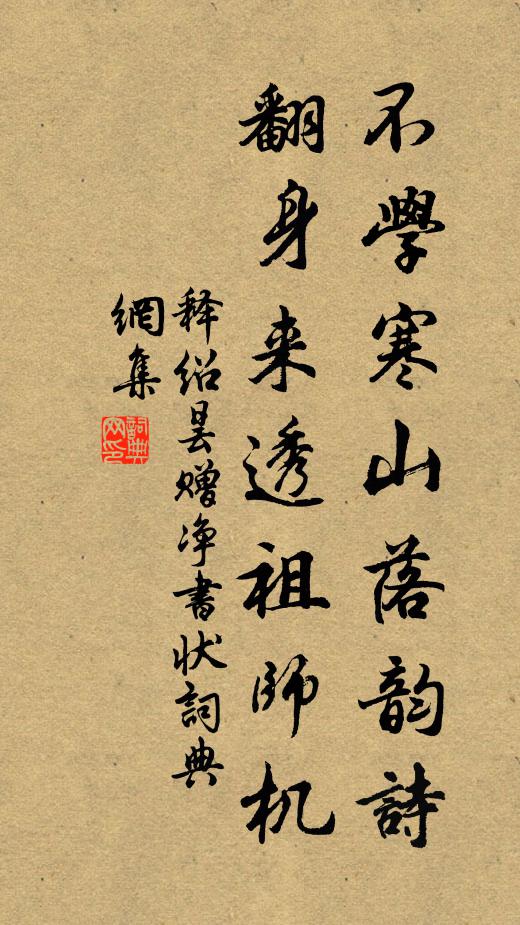 不學寒山落韵詩
翻身来透祖师机
释绍昙赠净書状詞典
網集
詞典
网印